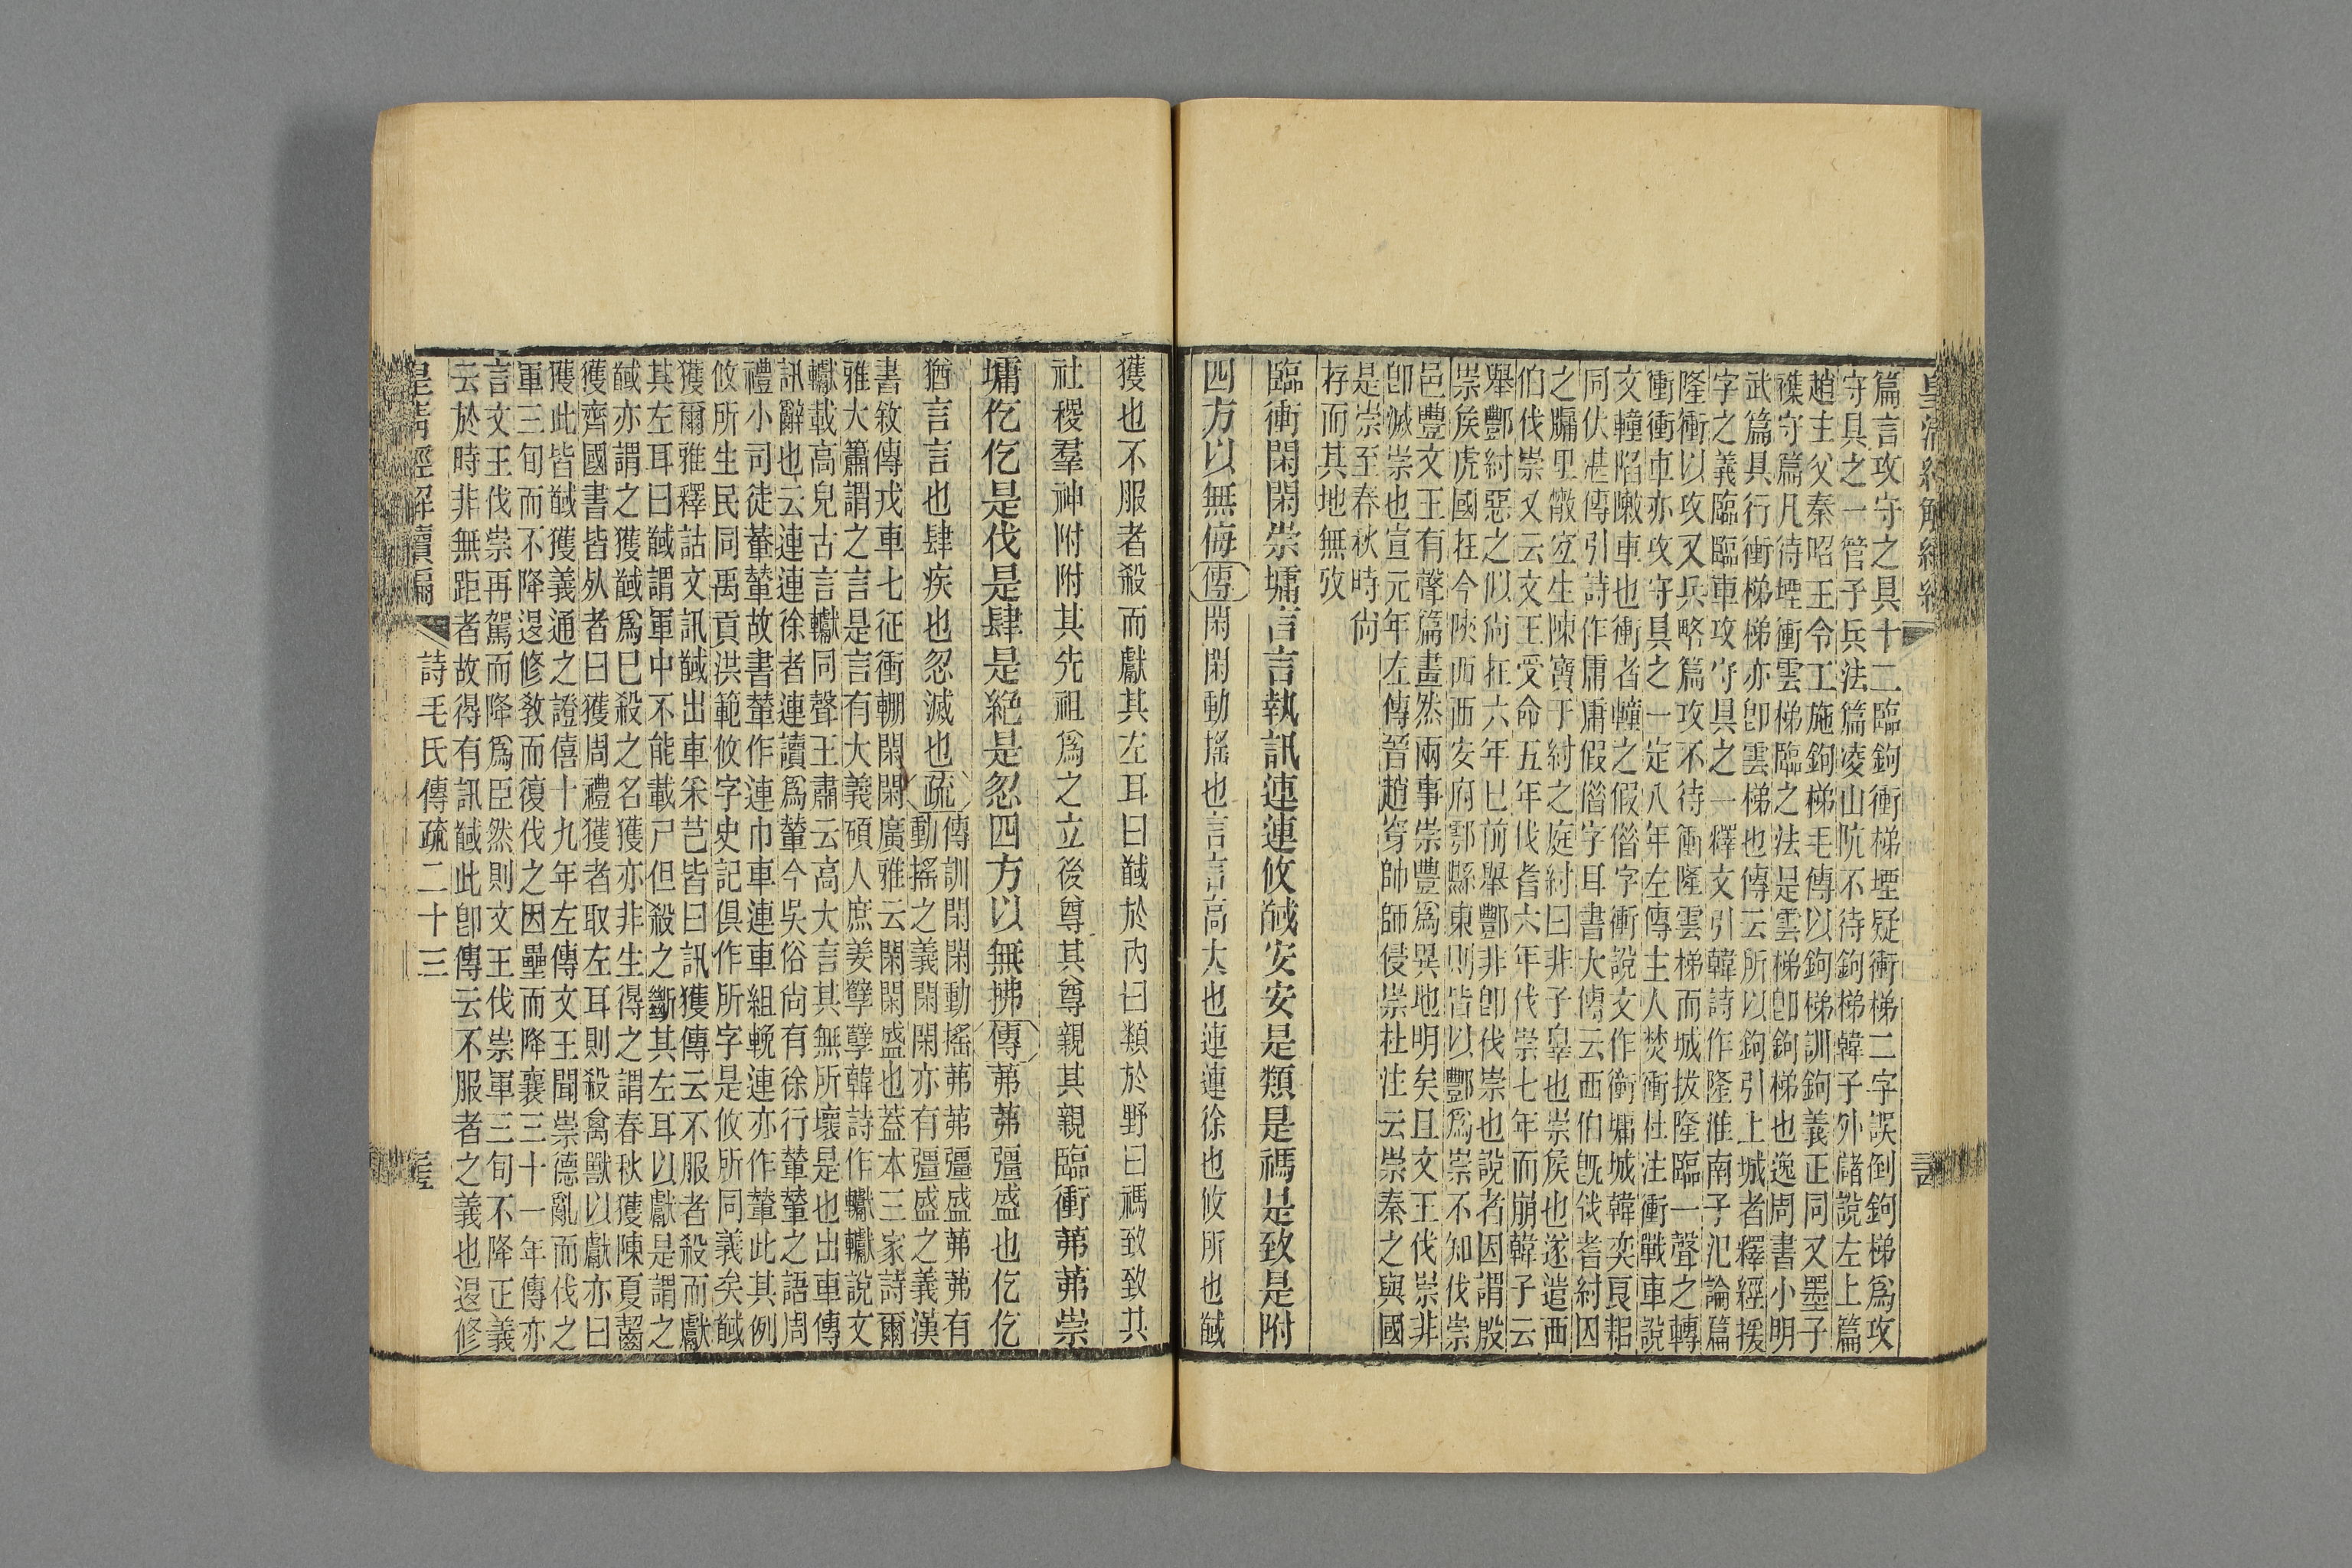 皇清經解續
篇言攻守之具十二臨鉤衝梯堙疑衝梯二字誤倒鉤梯爲攻
守具之一管子兵法篇凌山阬不待鉤梯韓子外儲說左上篇
趙主父秦昭王令工施鉤梯毛傳以鉤梯訓鉤義正同又墨子
襍守篇凡待堙衝雲梯臨之法是雲梯卽鉤梯也逸周書小明
武篇具行衝梯梯亦卽雲梯也傳云所以鉤引上城者釋經援
字之義臨臨車攻守具之一釋文引韓詩作隆淮南子氾論篇
隆衝以攻又兵略篇攻不待衝隆雲梯而城拔隆臨一聲之轉
衝衝車亦攻守具之一定八年左傳主人焚衝杜注衝戰車說
文䡴陷敶車也衝者䡴之假借字衝說文作衝墉城韓奕良耜
同伏湛傳引詩作庸庸假借字耳書大傳云西伯旣伐耆紂囚
之牖里散宜生陳寶于紂之庭紂曰非子辠也崇侯也遂遣西
伯伐崇又云文王受命五年伐耆六年伐崇七年而崩韓子云
舉酆紂惡之似尚在六年已前舉酆非卽伐崇也說者因謂殷
崇矦虎國在今陝西西安府鄠縣東則皆以酆爲崇不知伐崇
邑豐文王有聲篇畫然兩事崇豐爲異地明矣且文王伐崇非
卽滅崇也宣元年左傳晉趙穿帥師侵崇杜注云崇秦之與國
是崇至春秋時尚
存而其地無攷
臨衝閑閑崇墉言言執訊連連攸馘安安是類是禡是致是附
四方以無侮傳閑閑動搖也言言高大也連連徐也攸所也馘
獲也不服者殺而獻其左耳曰馘於內曰類於野曰禡致致其
社稷羣神附附其先祖爲之立後尊其尊親其親臨衝茀茀崇
墉仡仡是伐是肆是絕是忽四方以無拂傳茀茀彊盛也仡仡
猶言言也肆疾也忽滅也疏傳訓閑閑動搖茀茀彊盛茀茀有
動搖之義閑閑亦有彊盛之義漢
書敘傳戎車七征衝輣閑閑廣雅云閑閑盛也蓋本三家詩爾
雅大簫謂之言是言有大義碩人庶姜孽孽韓詩作轥轥說文
轥載高皃古言轥同聲王肅云高大言其無所壞是也出車傳
訊辭也云連連徐者連讀爲輦今吳俗尚有徐行輦輦之語周
禮小司徒輂輦故書輦作連巾車連車組輓連亦作輦此其例
攸所生民同禹貢洪範攸字史記俱作所字是攸所同義矣馘
獲爾雅釋詁文訊馘出車采芑皆曰訊獲傳云不服者殺而獻
其左耳曰馘謂軍中不能載尸但殺之斷其左耳以獻是謂之
馘亦謂之獲馘爲已殺之名獲亦非生得之謂春秋獲陳夏齧
獲齊國書皆死者曰獲周禮獲者取左耳則殺禽獸以獻亦曰
獲此皆馘獲義通之證僖十九年左傳文王聞崇德亂而伐之
軍三旬而不降退修敎而復伐之因壘而降襄三十一年傳亦
言文王伐崇再駕而降爲臣然則文王伐崇軍三旬不降正義
云於時非無距者故得有訊馘此卽傳云不服者之義也退修
皇淸經解續編 詩毛氏傳疏二十三